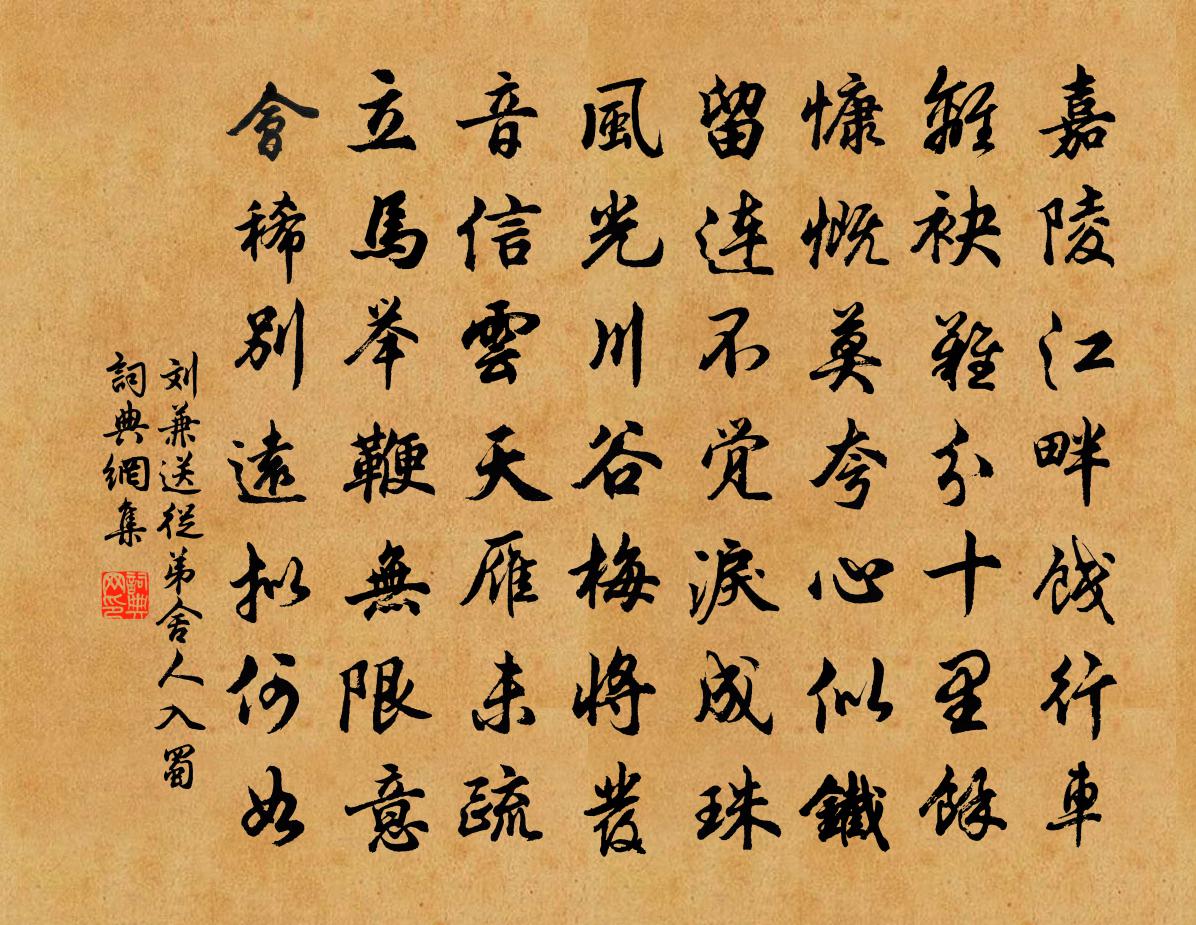 嘉陵江畔餞行車
離袂難分十里餘
慷慨莫夸心似鐵
留连不觉淚成珠
風光川谷梅將發
音信雲天雁未疏
立馬举鞭無限意
會稀別遠拟何如
刘兼送從弟舍人入蜀
詞典網集
詞典网印